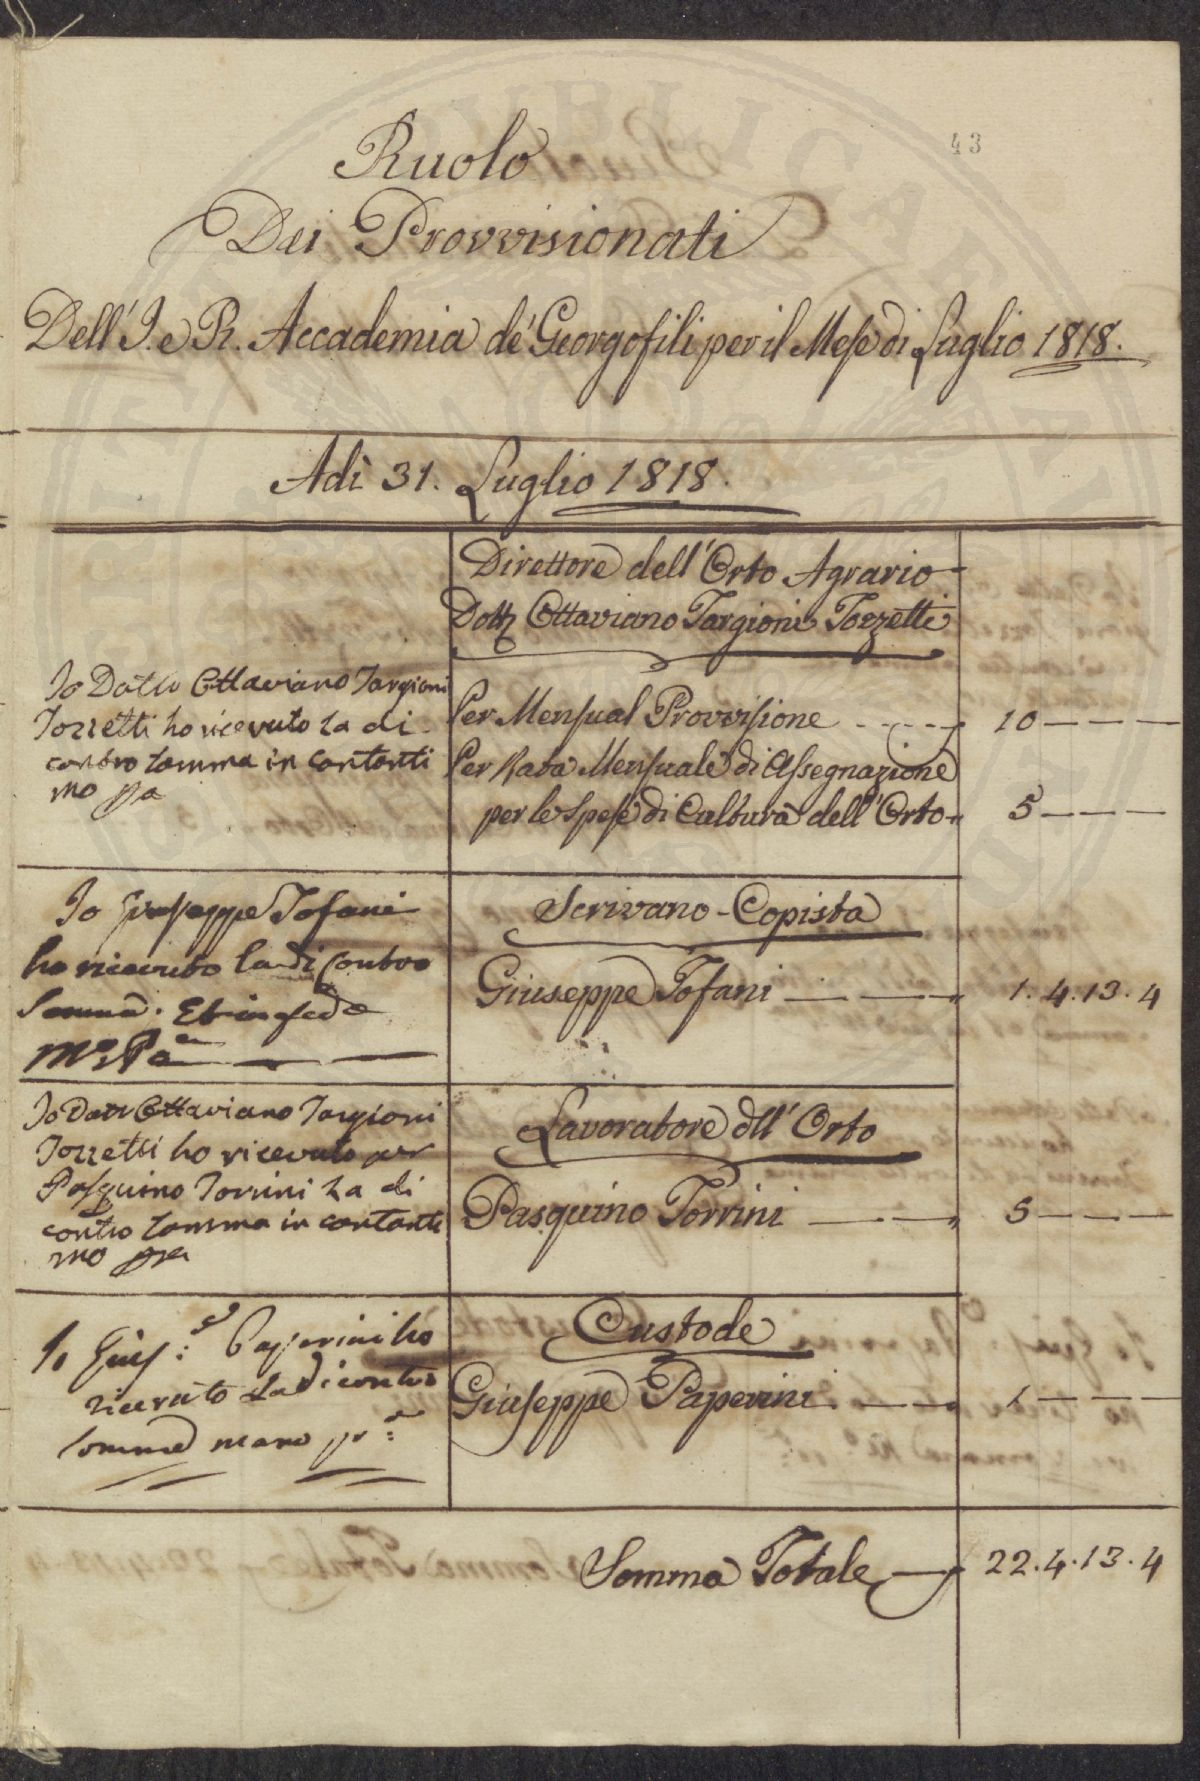 43
Ruolo
Dei Provvisionati
Dell' I. e R. Accademia de' Georgofili per il Mese di Luglio 1818.
Adì 31. Luglio 1818.
Direttore dell' Orto Agrario
Dott. Ottaviano Targioni Tozzetti
Io Dott. Ottaviano Targioni
Tozzetti ho ricevuto la di
contro somma in contanti
mo pa
Per Mensual Provvisione 10
Per Rata Mensuale di Assegnazione
per le spese di Cultura dell' Orto 5
Io Giuseppe Tofani
ho ricevuto la di Contro
Somma. Et in fede
Mo. Pa
Scrivano-Copista
Giuseppe Tofani 1.4.13.4
Io Dott Ottaviano Targioni
Tozzetti ho ricevuto per
Pasquino Torrini la di
contro somma in contanti
mo pa
Lavoratore dll' Orto
Pasquino Torrini 5
Io Gius.e Paperini ho
ricevuto la di contro
somma mano pr.a
Custode
Giuseppe Paperini 1
Somma Totale 22.4.13.4